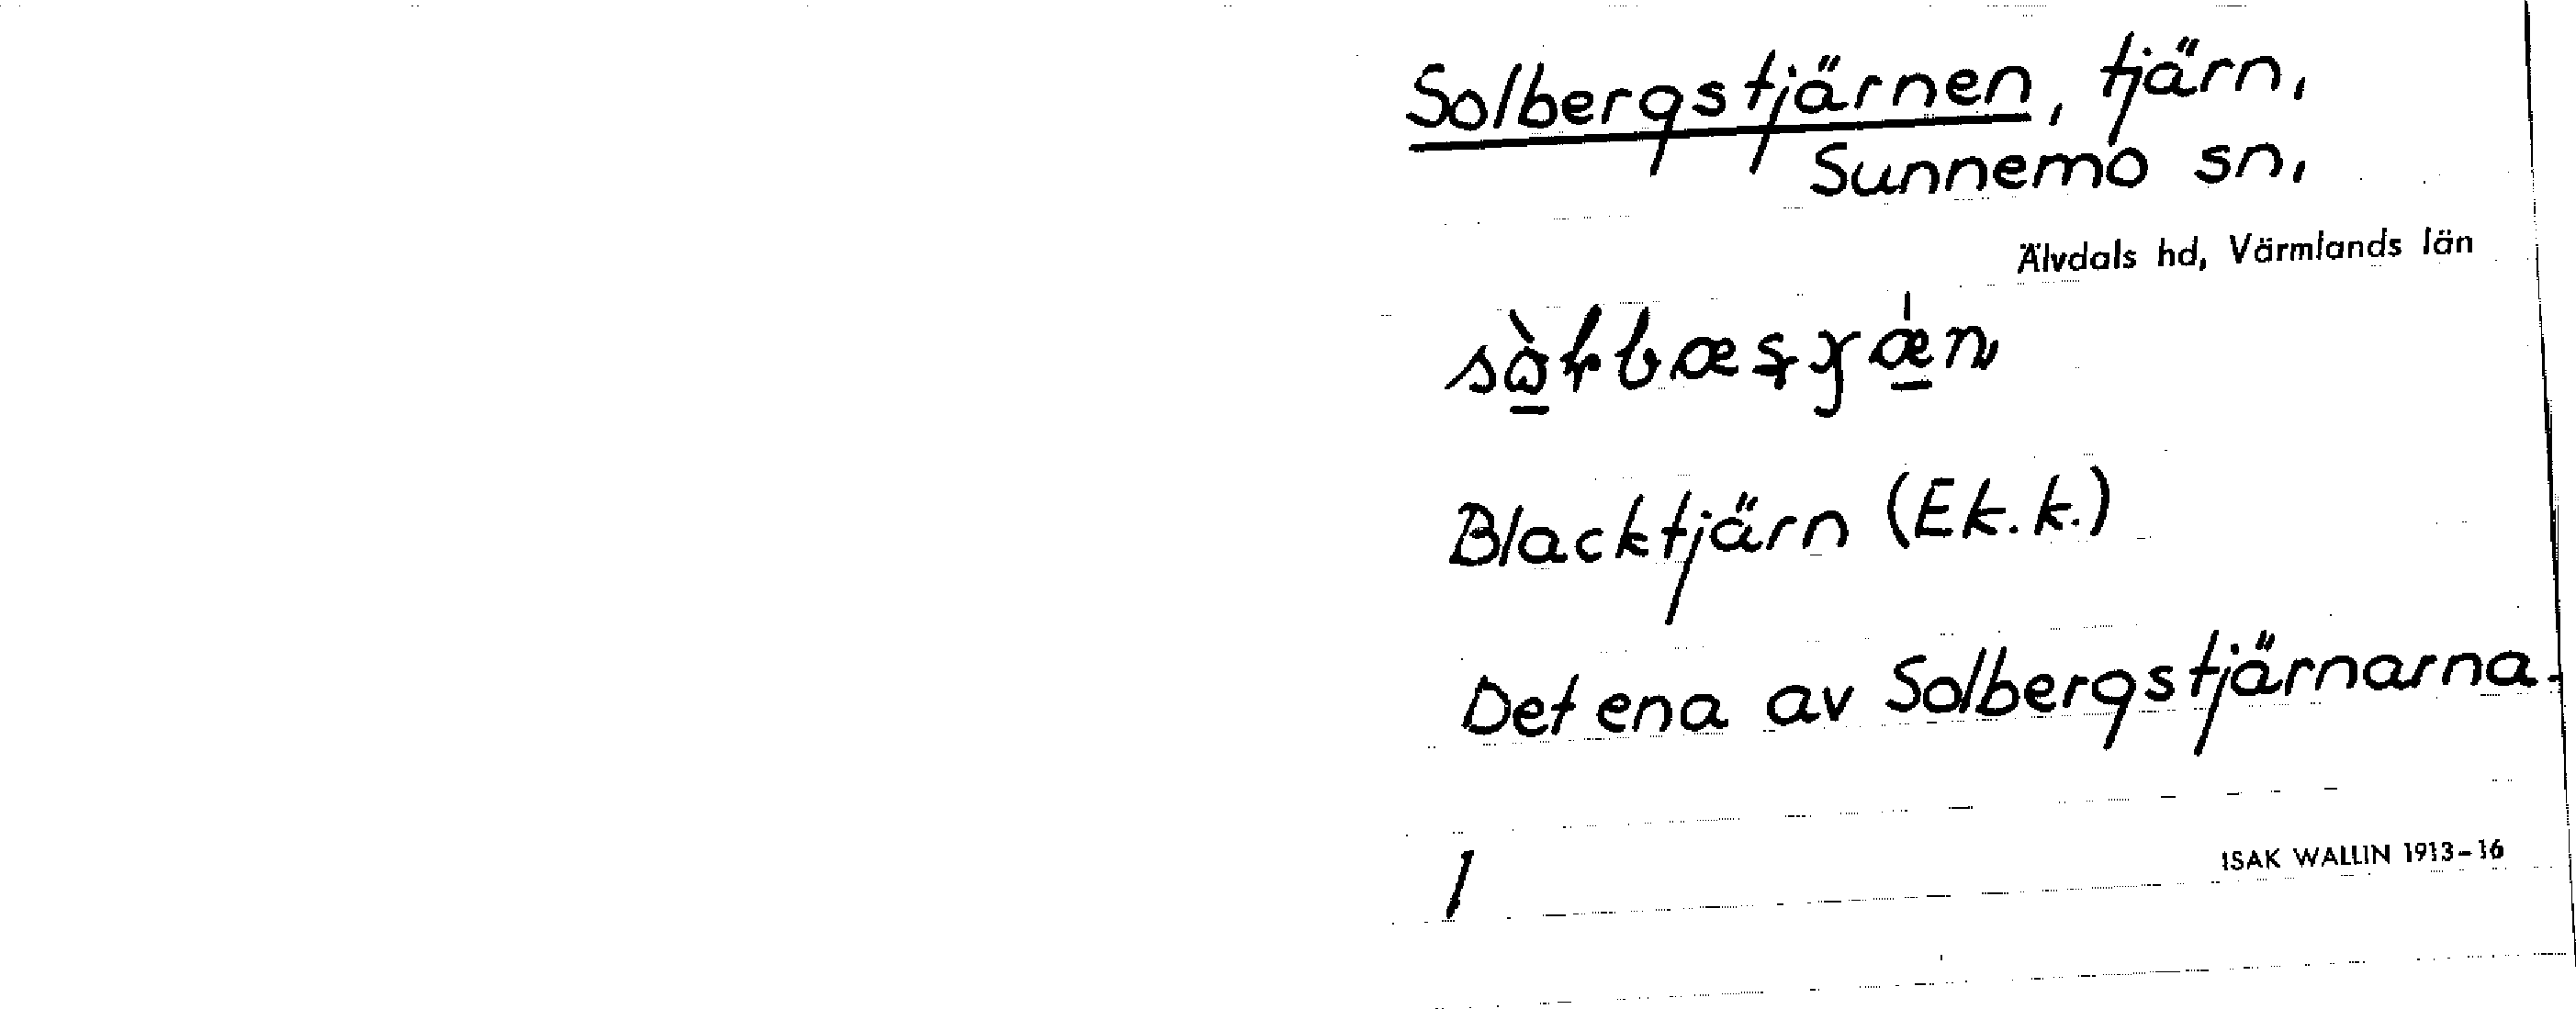 Solbergstjärnen, tjärn,
Sunnemo sn,
Älvdals hd, Värmlands län
Blacktjärn (Ek. k.)
Det ena av Solbergstjärnarna.
1
ISAK WALLIN 1913-16